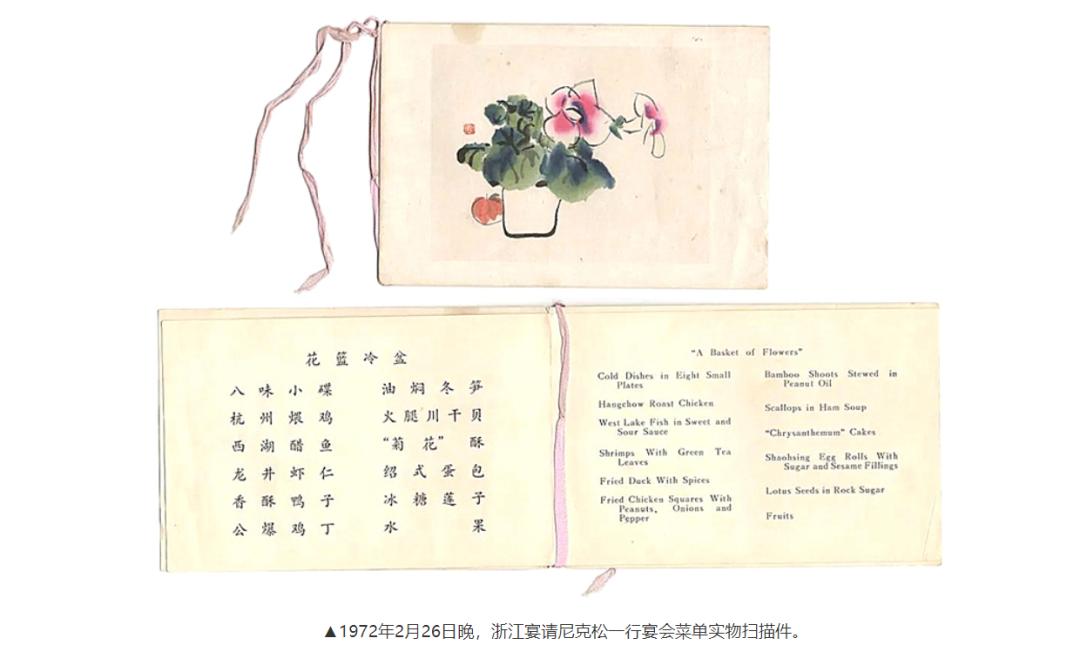 花篮冷盆
八味小碟
杭州煨鸡
西湖醋鱼
龙井虾仁
香酥鸭子
公爆鸡丁
油焖冬笋
火腿川干贝
“菊花”酥
绍式蛋包
冰糖莲子
水果
“A Basket of Flowers”
Cold Dishes in Eight Small
Plates
Hangchow Roast Chicken
West Lake Fish in Sweet and
Sour Sauce
Shrimps With Green Tea
Leaves
Fried Duck With Spices
Fried Chicken Squares With
Peanuts, Onions and
Pepper
Bamboo Shoots Stewed in
Peanut Oil
Scallops in Ham Soup
“Chrysanthemum” Cakes
Shaohsing Egg Rolls With
Sugar and Sesame Fillings
Lotus Seeds in Rock Sugar
Fruits
▲1972年2月26日晚，浙江宴请尼克松一行宴会菜单实物扫描件。